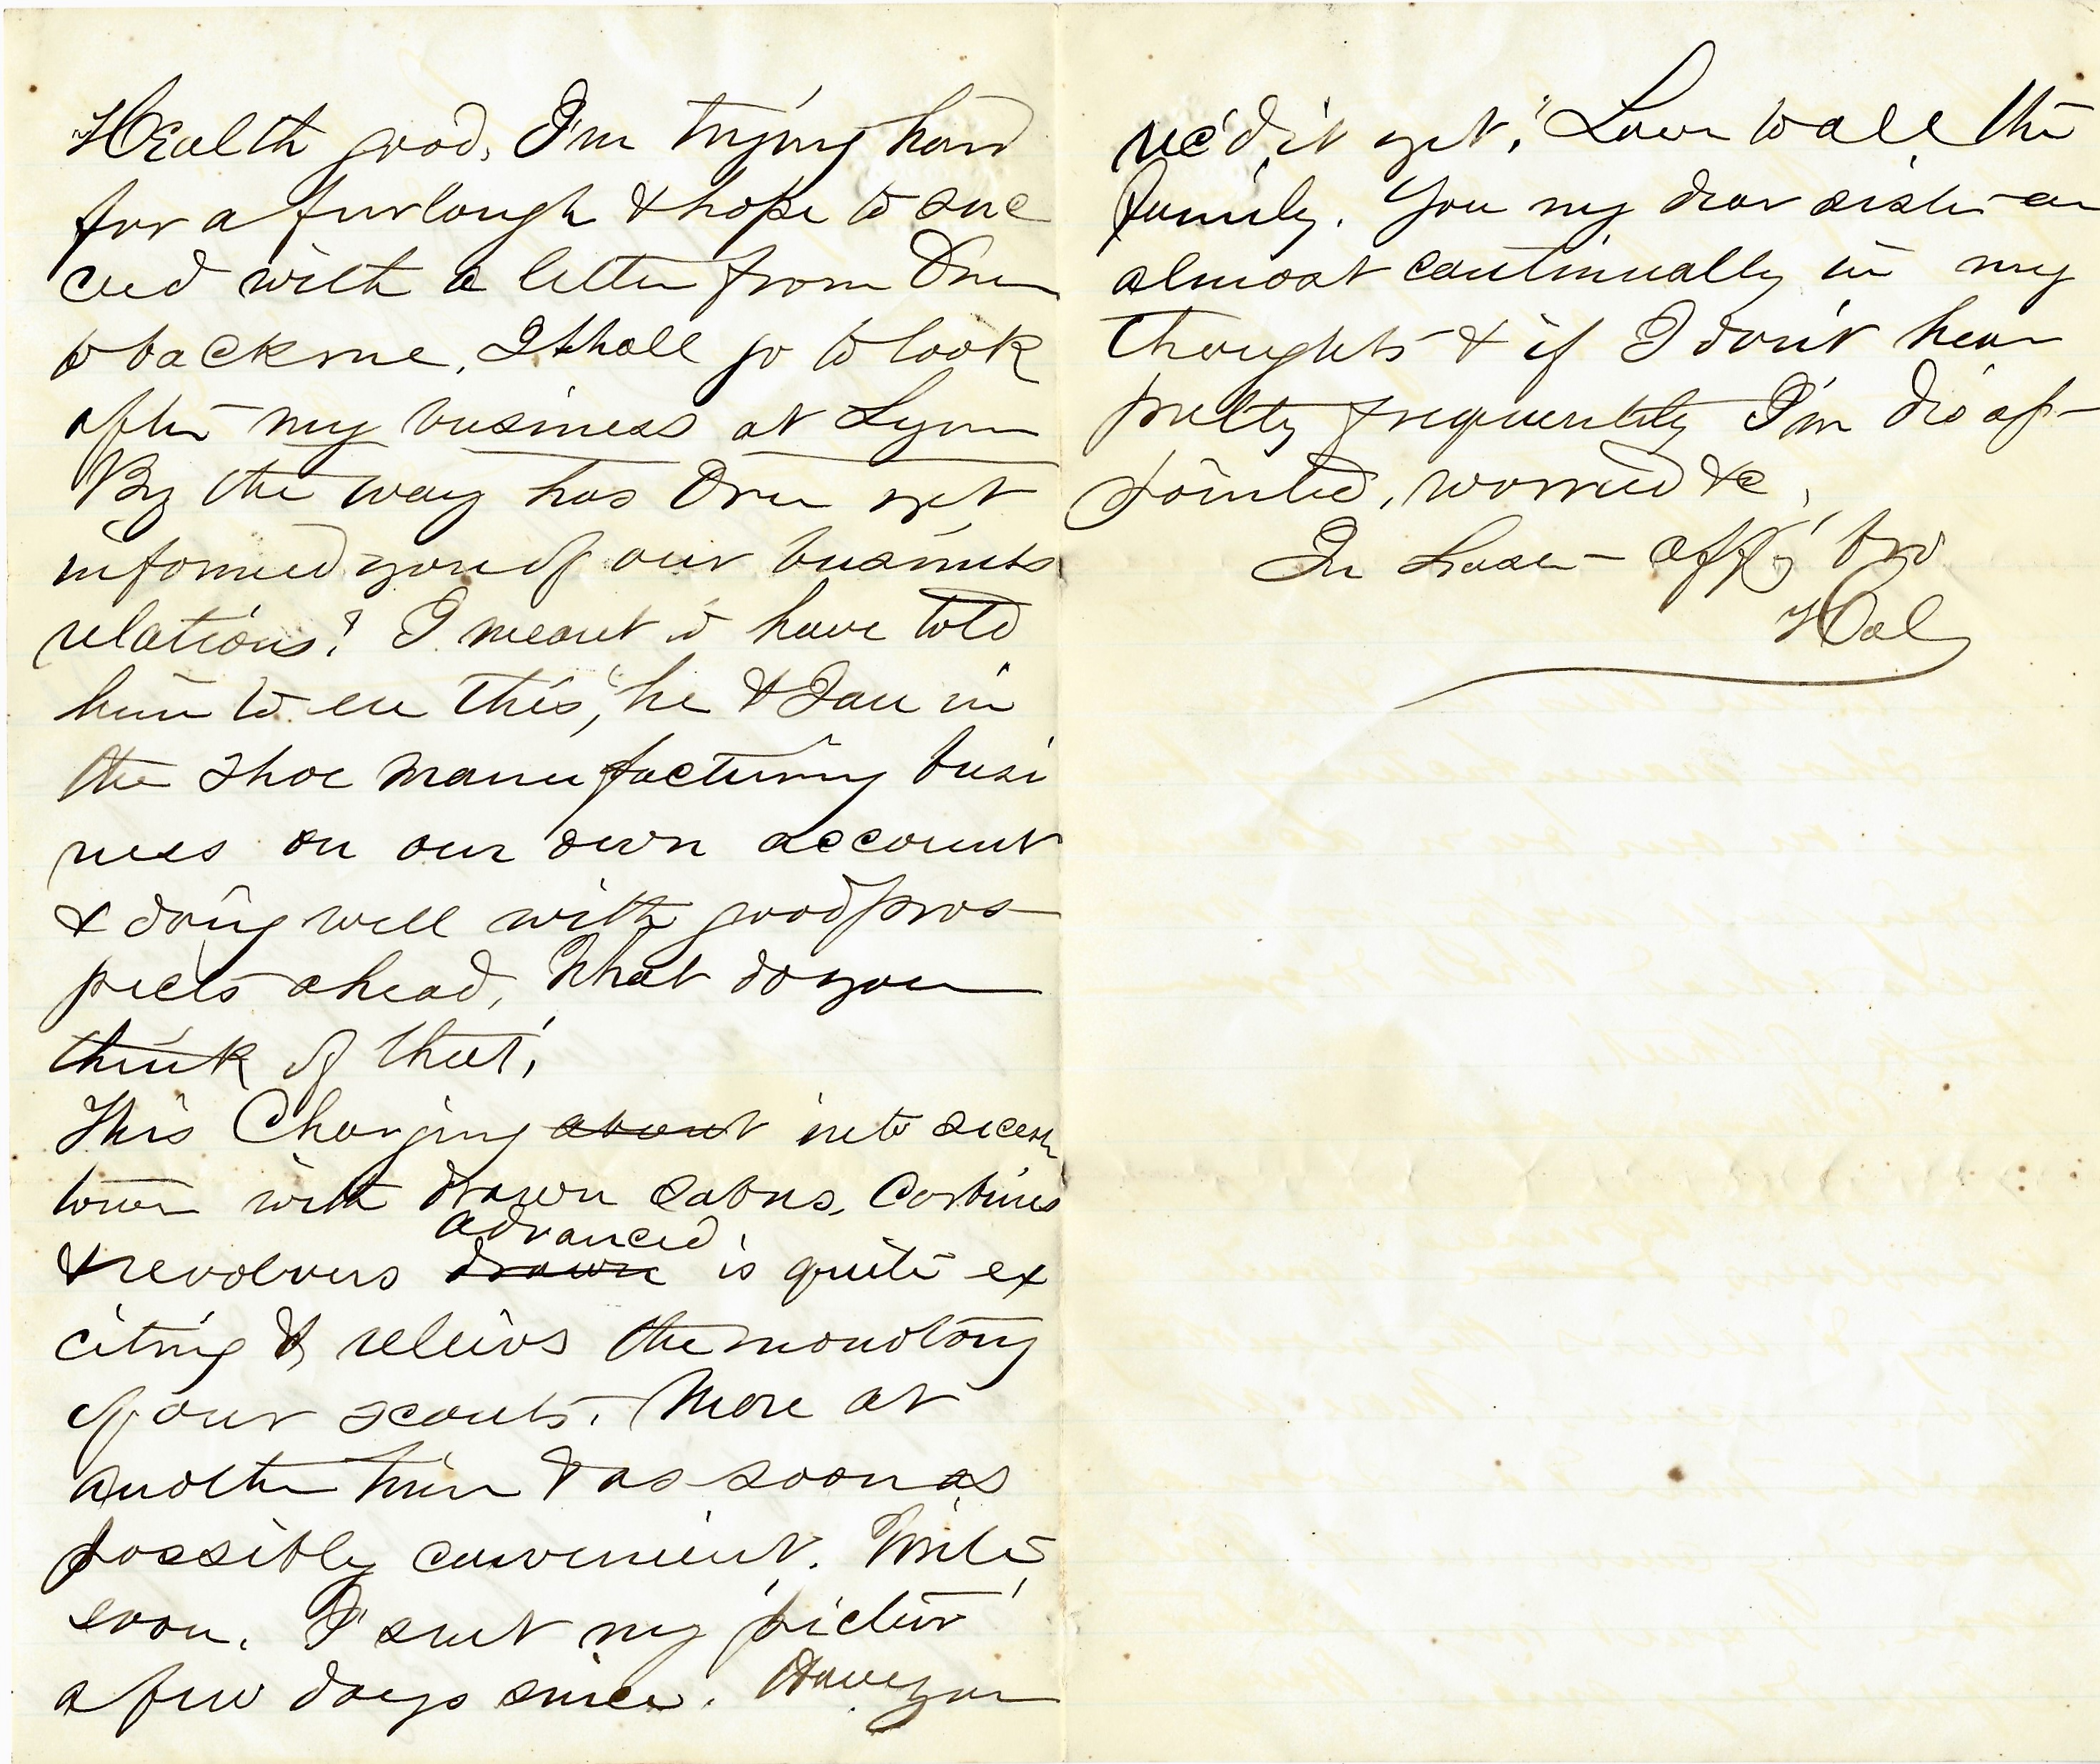 Health good, I'm trying hard
for a furlough & hope to suc
ceed with a letter from Oren
to back me. I shall go to look
after my business at Lynn
By the way has Oren yet
informed you of our business
relations? I meant to have told
him to ere this, he & I are in
the shoe manufacturing busi
ness on our own account
& doing well with good pros
pects ahead, What do you
think of that,
This Charging about into secesh
town with drawn sabres, Carbines
advanced
& revolvers drawn is quite ex
citing & releivs the monotony
of our scouts. More at
another time & as soon as
possibly convenient. Write
soon. I sent my picture
a few days since. Have you
rec'd it yet, Love to all the
family. You my dear sister are
almost continually in my
thoughts & if I don't hear
pretty frequently I'm disap-
pointed, worried &c,
In haste - aff' bro
Hal